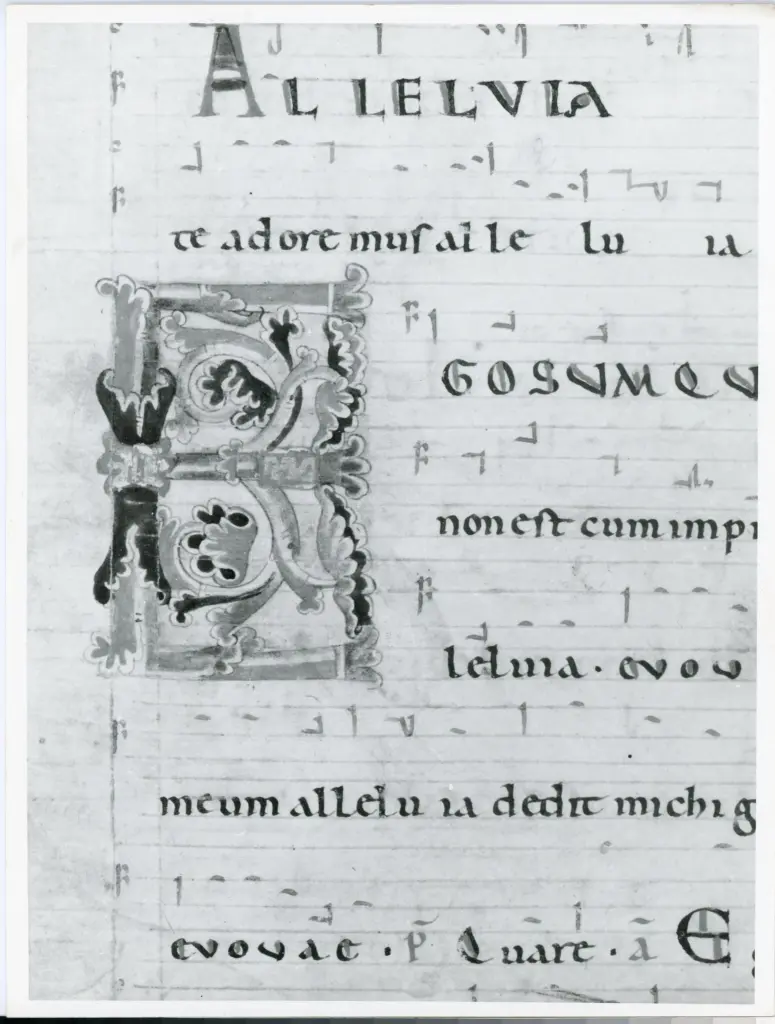 ALLELVIA
te adoremus alle lu ia
EGO SVM QV
non est cum impi
leluia · evov
meum allelu ia dedit michi g
evovae · P Quare · a E